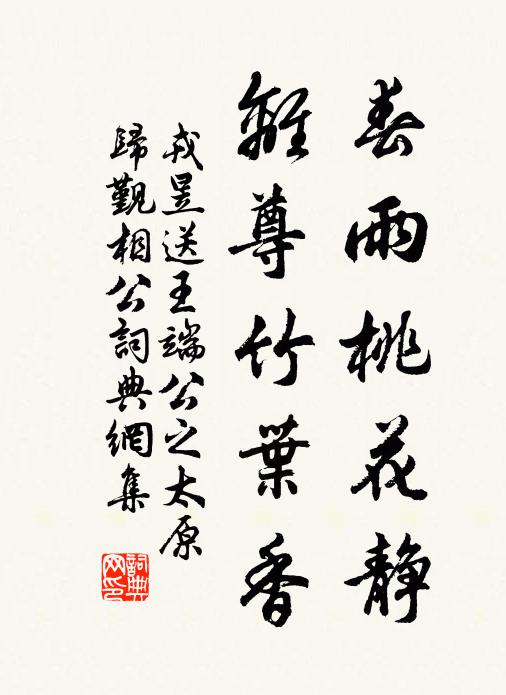 春雨桃花静
離尊竹葉香
戎昱送王端公之太原
歸覲相公詞典網集
詞典网印